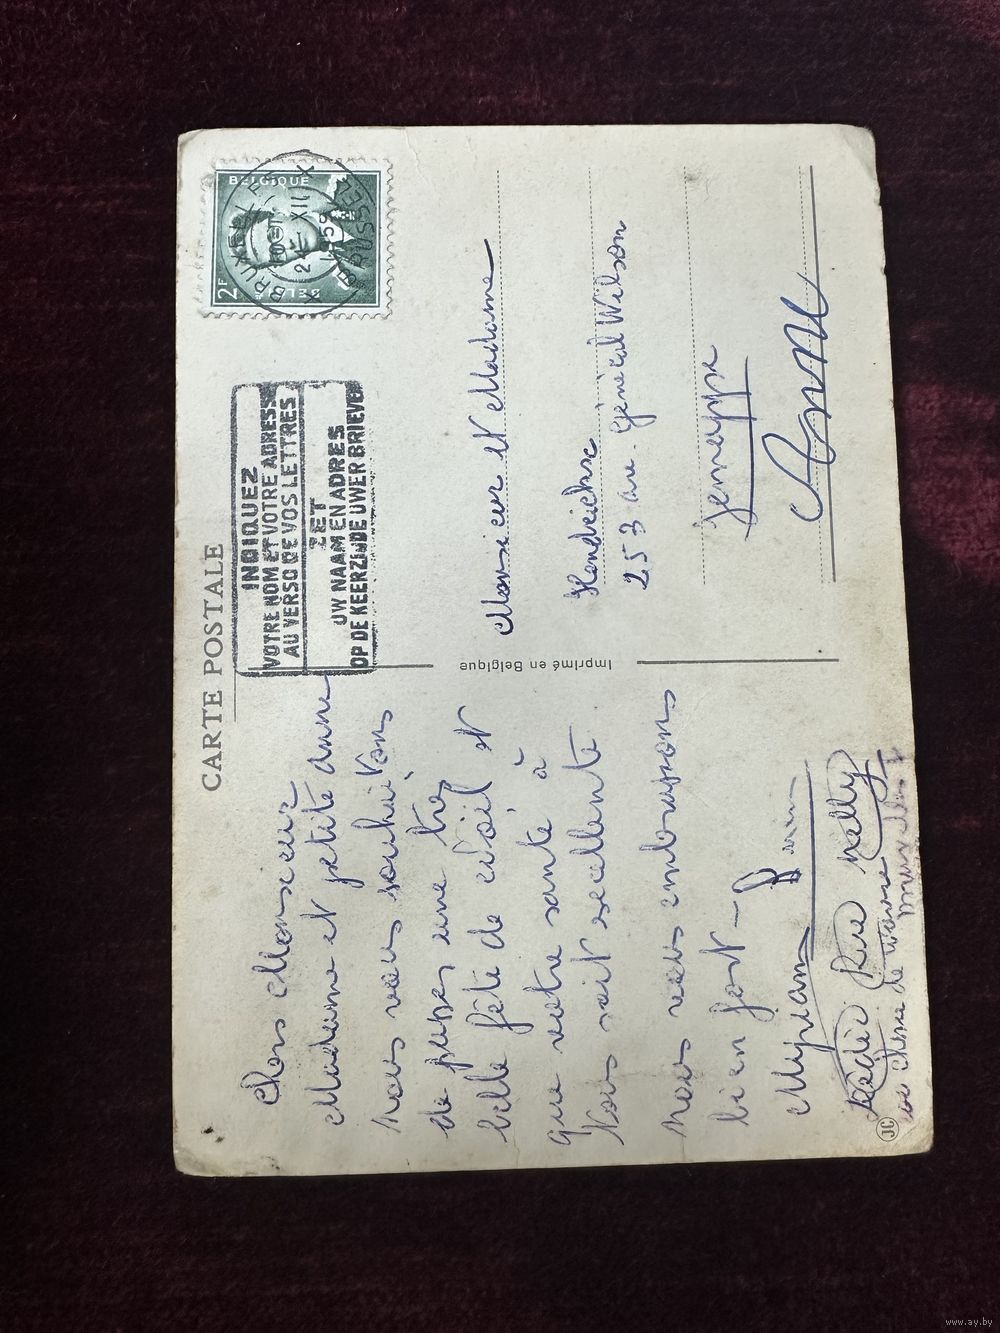 CARTE POSTALE
BELGIQUE
2F
BELGIË
BRUXELLES
BRUSSEL
XII
INDIQUEZ
VOTRE NOM ET VOTRE ADRESSE
AU VERSO DE VOS LETTRES
ZET
UW NAAM EN ADRES
OP DE KEERZIJDE UWER BRIEVEN
Chers Monsieur
Madame et petite anne
Nous vous souhaitons
de passer une très
belle fête de Noël et
que votre santé à
Vous soit excellente
Nous vous embrassons
bien fort –
Myriam
Rue Nelly
de Wavre
Imprimé en Belgique
Monsieur et Madame
Hendrickx
253 av. Général Wilson
Jemappe
Anne
JC
www.ay.by